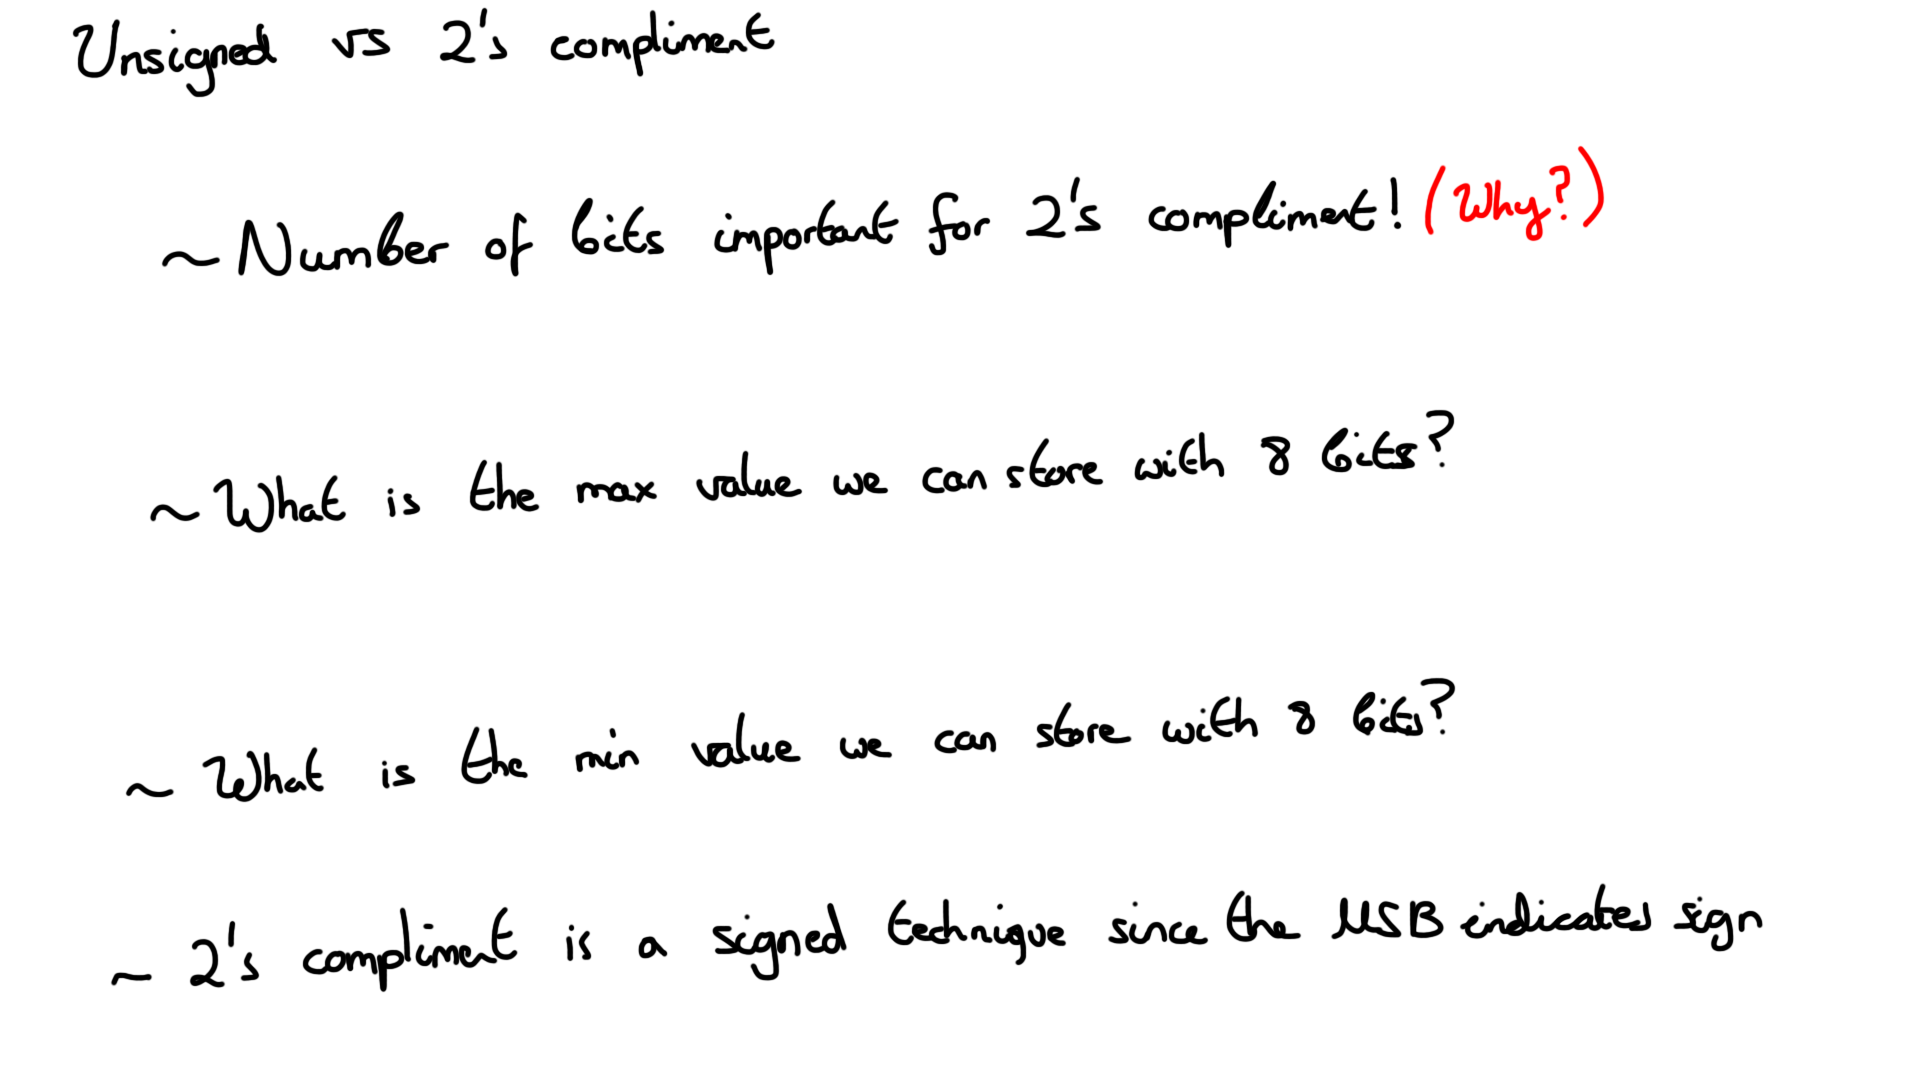 Unsigned vs 2's compliment
~ Number of bits important for 2's compliment! (Why?)
~ What is the max value we can store with 8 bits?
~ What is the min value we can store with 8 bits?
~ 2's compliment is a signed technique since the MSB indicates sign